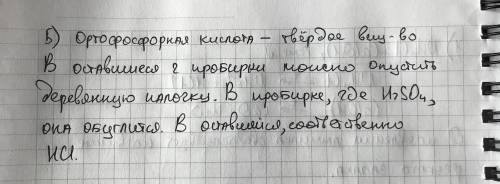 Б) Ортофосфорная кислота – твёрдое вещ-во
В оставшиеся 2 пробирки можно опустить
деревянную палочку. В пробирке, где H₂SO₄,
она обуглится. В оставшийся, соответственно
HCl.